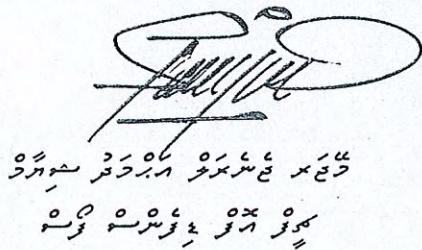 މޭޖަރ ޖެނެރަލް އަޙްމަދު ޝިޔާމް
ޗީފް އޮފް ޑިފެންސް ފޯސް